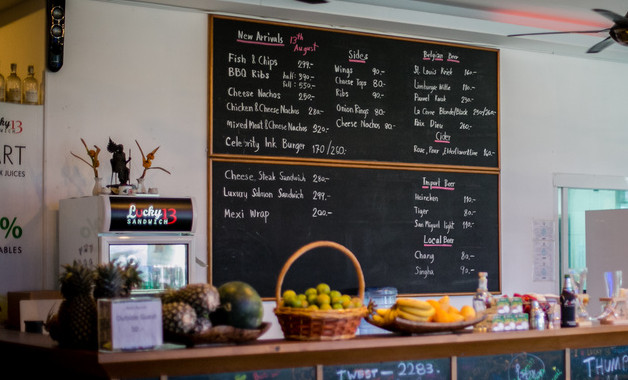 New Arrivals 13th August
Fish & Chips 299.-
BBQ Ribs half: 390.-
full: 550.-
Cheese Nachos 250.-
Chicken & Cheese Nachos 280.-
Mixed Meat & Cheese Nachos 320.-
Celebrity Ink Burger 170/260.-
Sides
Wings 90.-
Cheese Tops 80.-
Ribs 90.-
Onion Rings 80.-
Cheese Nachos 80.-
Belgian Beer
St. Louis Kriek
Pauwel Kwak
La Corne Blonde/Black 250/260.-
Paix Dieu 260.-
Cider
Rose, Pear, Elderflower & Lime
Cheese, Steak Sandwich 280.-
Luxury Salmon Sandwich 299.-
Mexi Wrap 200.-
Import Beer
Heineken
Tiger 80.-
San Miguel light
Local Beer
Chang 80.-
Singha 90.-
Lucky 13
SANDWICH
13
ART
JUICES
%
ABLES
Outside Guest
TWEET - 2283.
THUMP